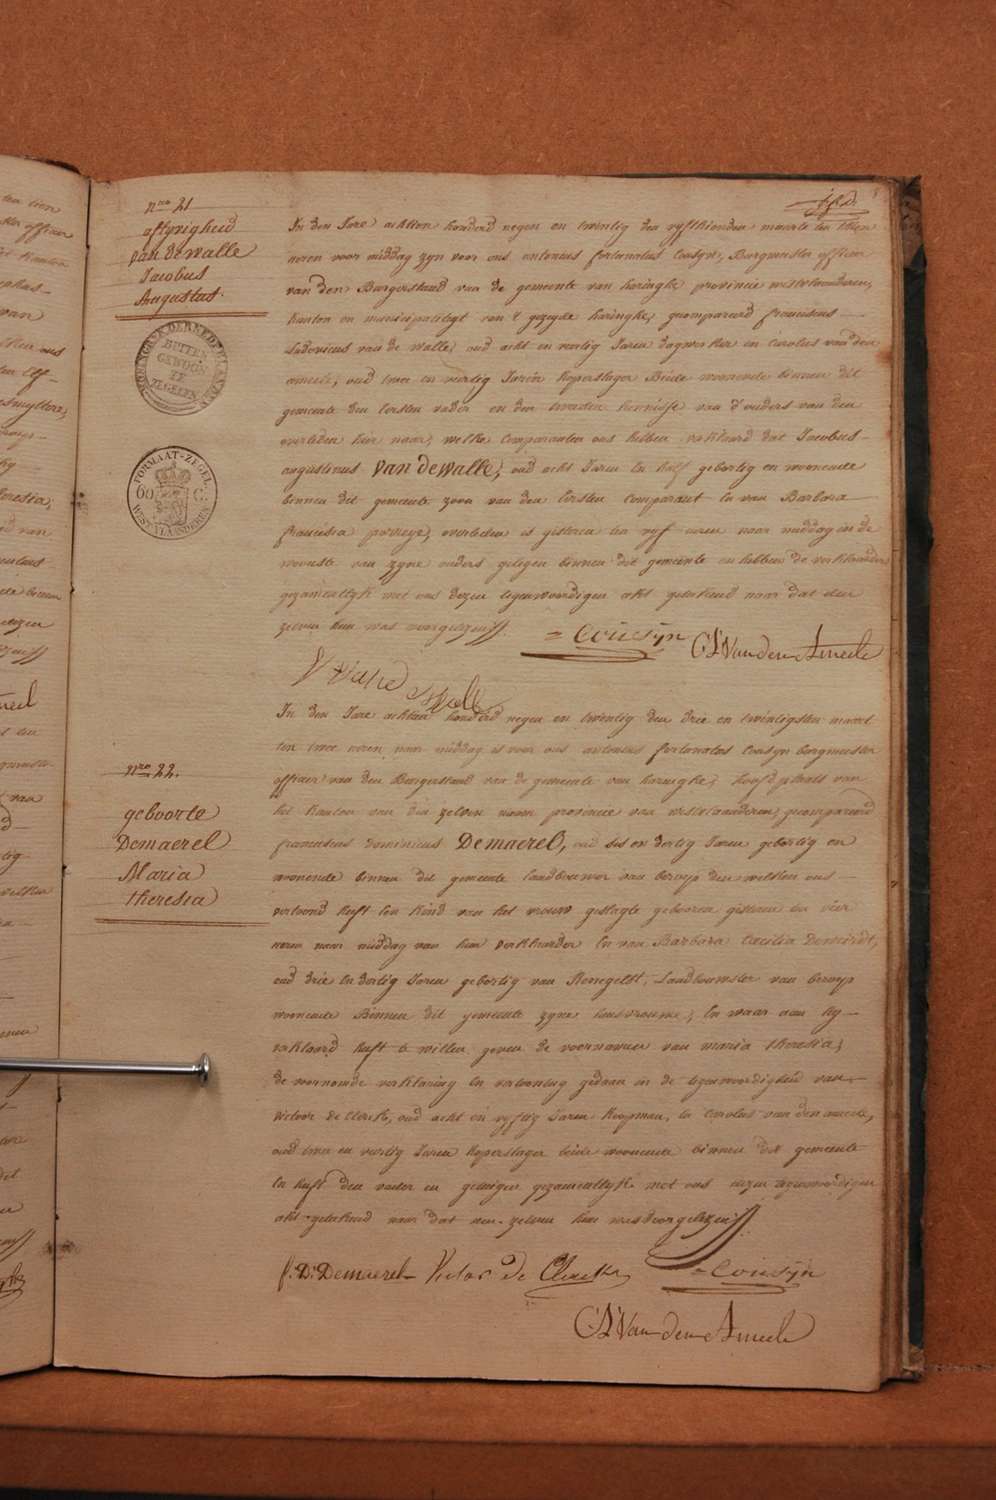 nro 21
aflyvigheid
van de Walle
Jacobus
Augustus.
KONINGRYK DER NEDERLANDEN
BUITEN
GEWOON
TE
ZEGELEN
FORMAAT-ZEGEL
60 C.
WEST-VLAANDEREN
In den Jare achtien honderd negen en twintig den vyfthienden maarte ten thien
uren voor middag zyn voor ons antonius fortunatus Cousyn, Burgmeester officier
van den Burgerstand van de gemeente van haringhe provincie westvlaanderen,
kanton en municipaliteyt van 't gezeyde haringhe, gecompareerd franciscus
Ludovicus van de Walle, oud acht en veertig Jaren dagwerker en Carolus van den
ameele, oud twee en veertig Jaren koperslager Beide woonende binnen dit
gemeente den eersten vader en den tweeden kennisse van d'ouders van den
overleden hier naar, welke comparanten ons hebben verklaard dat Jacobus
augustinus van de Walle, oud acht Jaren en half gebortig en woonende
binnen dit gemeente zoon van den eersten comparant en van Barbara
francisca overleden is gisteren ten vyf uren naar middag in de
woonste van zyne ouders gelegen binnen dit gemeente en hebben de verklaarders
gezamentlyk met ons dezen tegenwoordigen akt geteekend naar dat den
zelven hun was voorgelezen
Cousyn C L Van den Ameele
In den Jare achtien honderd negen en twintig den drie en twintigsten maart
ten twee uren naar middag is voor ons antonius fortunatus Cousyn borgmeester
officier van den Burgerstand van de gemeente van haringhe, hoofdplaats van
het kanton van die zelven naam provincie van westvlaanderen, gecompareerd
franciscus dominicus Demaerel, oud ses en dertig Jaren gebortig en
woonende binnen dit gemeente landbouwer van beroep den welken ons
vertoond heeft een kind van het vrouw geslagte gebooren gisteren ten vier
uren naar middag van hem verklaarder en van Barbara Cecilia
oud drie en dertig Jaren gebortig van Landbouwster van beroep
woonende Binnen dit gemeente zyne huisvrouwe, en waar aan hy
verklaard heeft te willen geven de voornamen van maria theresia,
de voornoemde verklaring en vertooning gedaan in de tegenwoordigheid van
victoor de Clerck, oud acht en vyftig Jaren koopman, en Carolus van den ameele,
oud twee en veertig Jaren koperslager beide woonende binnen dit gemeente
en heeft den vader en getuigen gezamentlyk met ons dezen tegenwoordigen
akt geteekend naar dat den zelven hun was voorgelezen
nro 22.
geboorte
Demaerel
Maria
theresia
f. D. Demaerel Victor de Clerck Cousyn
C L Van den Ameele